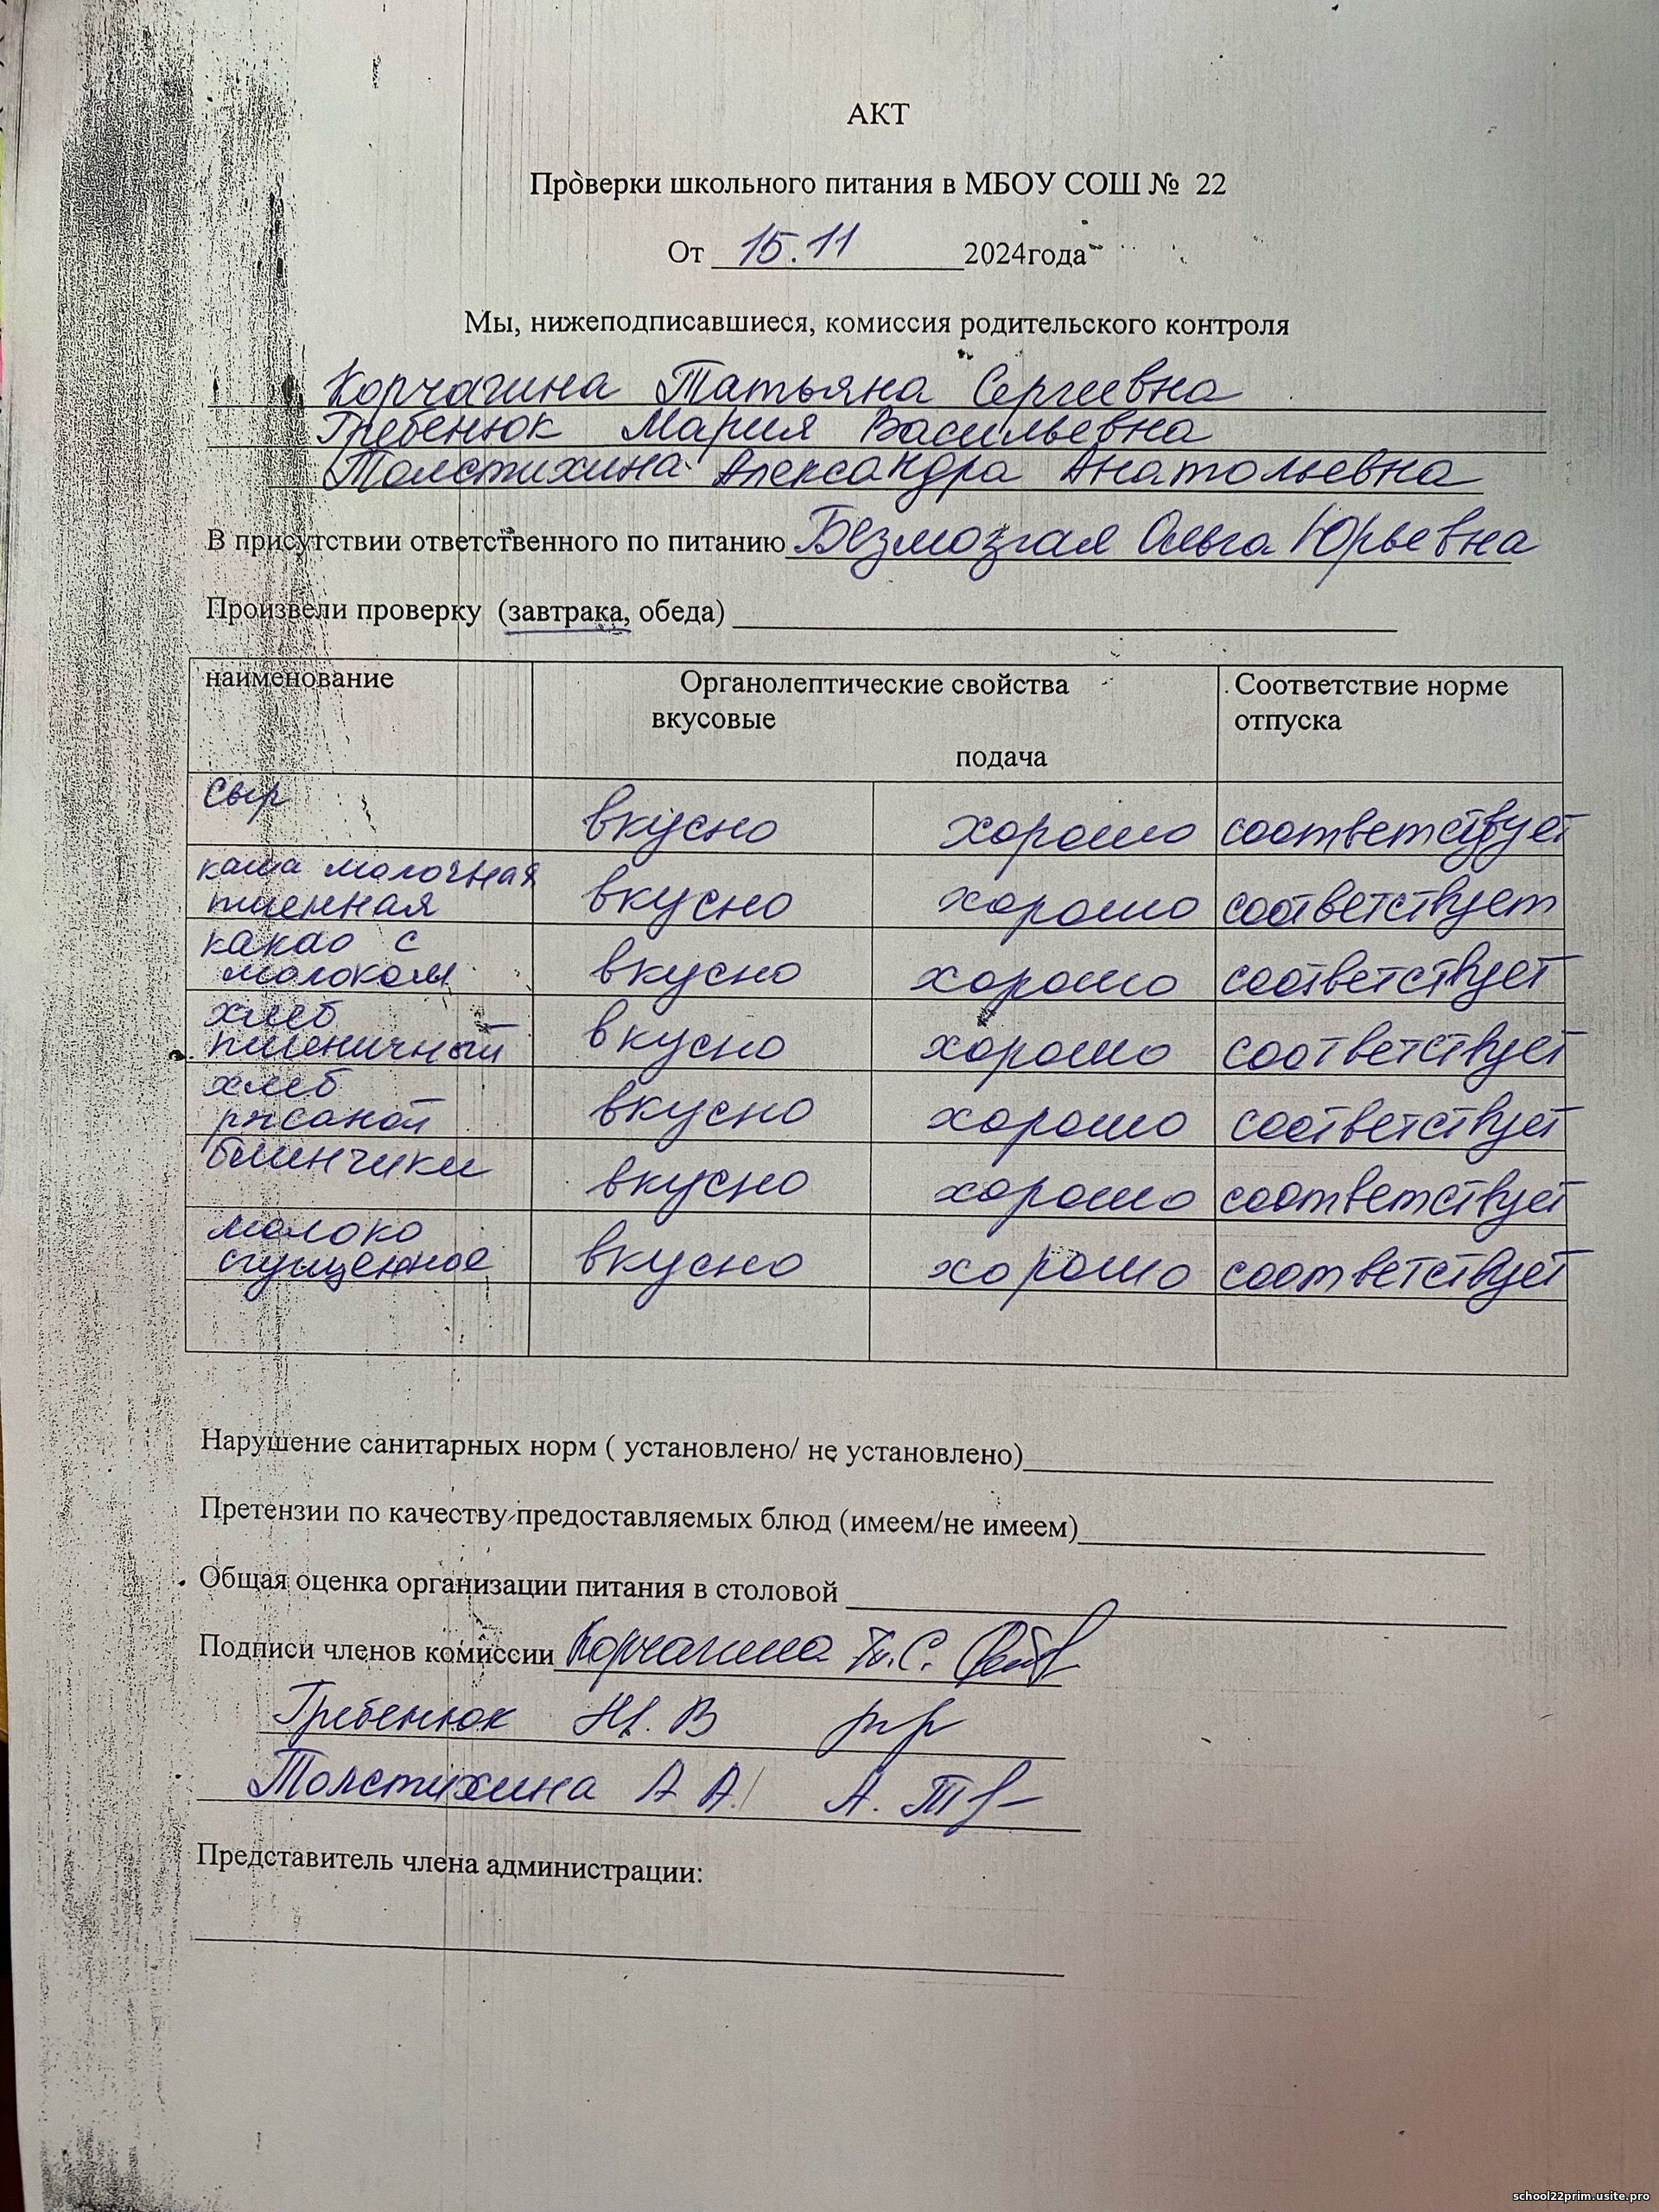 АКТ
Проверки школьного питания в МБОУ СОШ № 22
От 15.11 2024года
Мы, нижеподписавшиеся, комиссия родительского контроля
Корчагина Татьяна Сергеевна
Гребенюк Мария Васильевна
Толстихина Александра Анатольевна
В присутствии ответственного по питанию Безмозгая Ольга Юрьевна
Произвели проверку (завтрака, обеда)
наименование Органолептические свойства Соответствие норме
вкусовые отпуска
подача
Сыр вкусно хорошо соответствует
каша молочная
пшенная вкусно хорошо соответствует
какао с
молоком вкусно хорошо соответствует
хлеб
пшеничный вкусно хорошо соответствует
хлеб
ржаной вкусно хорошо соответствует
блинчики вкусно хорошо соответствует
молоко
сгущенное вкусно хорошо соответствует
Нарушение санитарных норм ( установлено/ не установлено)
Претензии по качеству предоставляемых блюд (имеем/не имеем)
Общая оценка организации питания в столовой
Подписи членов комиссии Корчагина Т.С.
Гребенюк М. В
Толстихина А А.
Представитель члена администрации:
school22prim.usite.pro